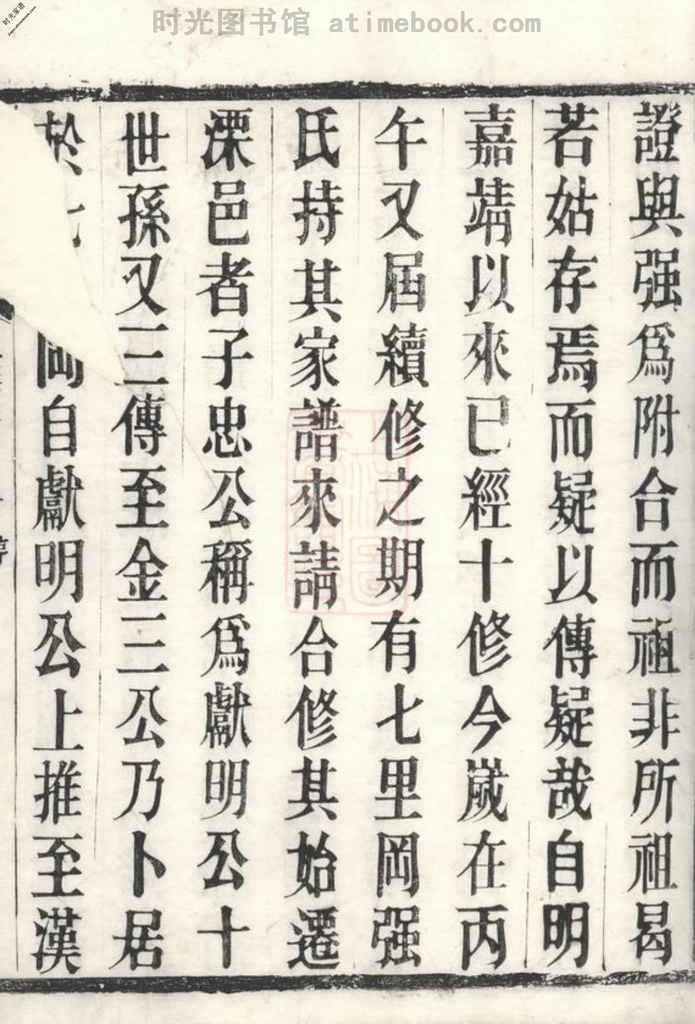 时光图书馆 atimebook.com
时光家谱
證與强爲附合而祖非所祖曷
若姑存焉而疑以傳疑哉自明
嘉靖以來已經十修今嵗在丙
午又屆續修之期有七里岡强
氏持其家譜來請合修其始遷
溧邑者子忠公稱爲獻明公十
世孫又三傳至金三公乃卜居
於七岡自獻明公上推至漢